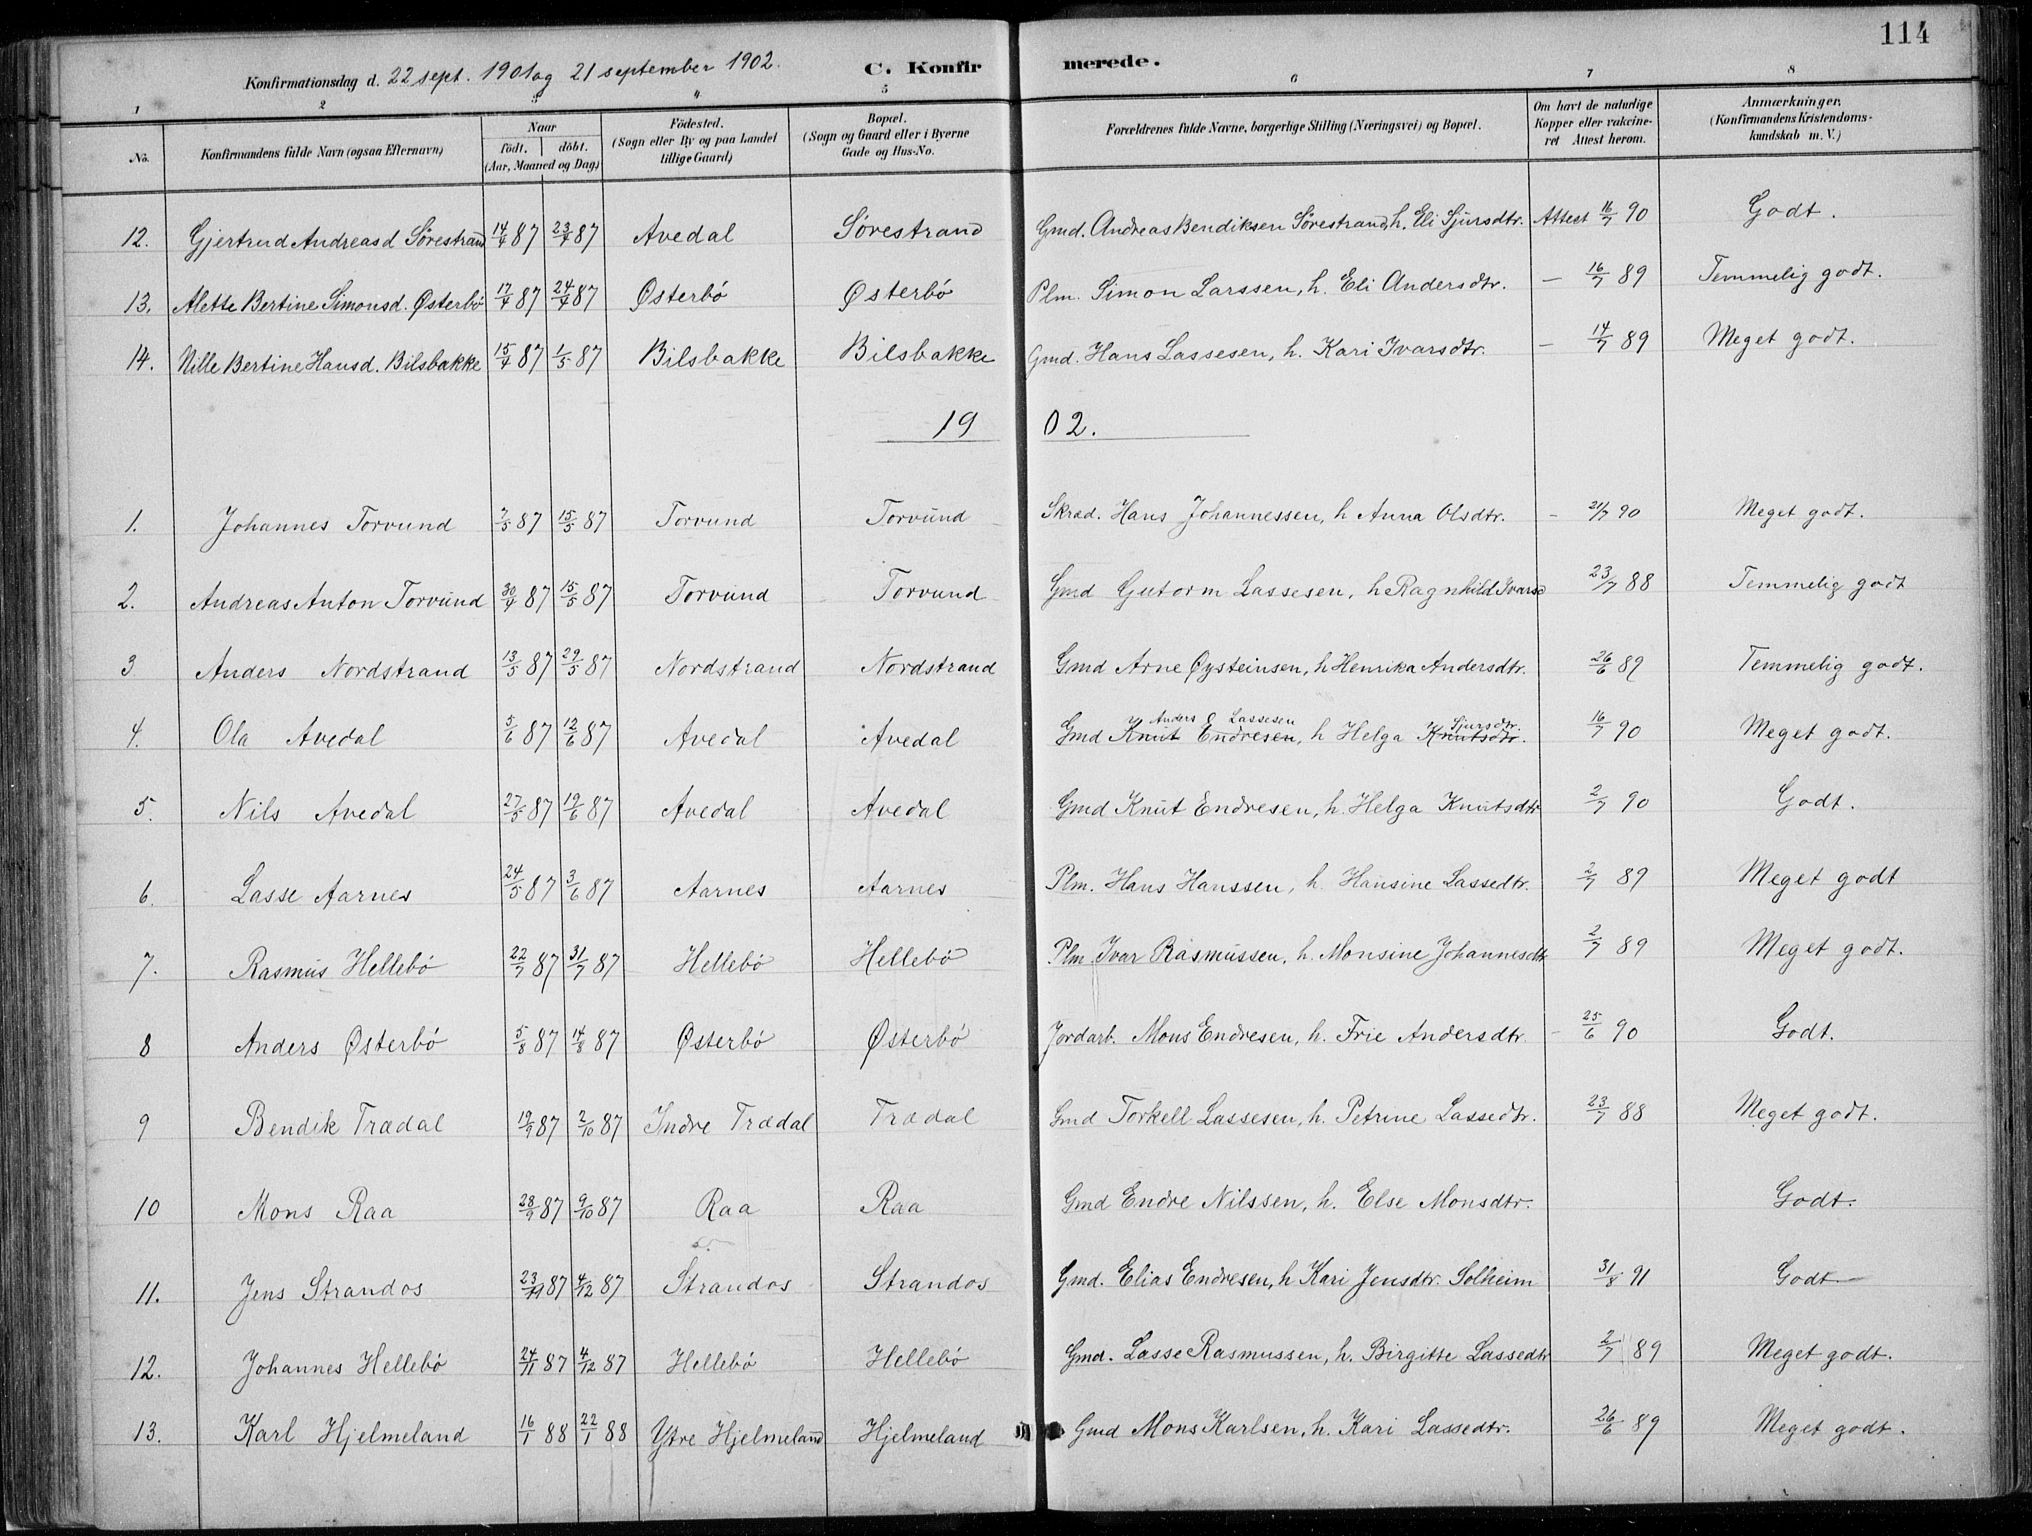 114
Konfirmationsdag d. 22 sept. 1901 og 21 september 1902. C. Konfirmerede.
1 2 3 4 5 6 7 8
No. Konfirmandens fulde Navn (ogsaa Efternavn) Naar födt. döbt. (Aar, Maaned og Dag) Födested. (Sogn eller By og paa Landet tillige Gaard) Bopæl. (Sogn og Gaard eller i Byerne Gade og Hus-No. Forældrenes fulde Navne, borgerlige Stilling (Næringsvei) og Bopæl. Om havt de naturlige Kopper eller vakcineret Attest herom. Anmærkninger. (Konfirmandens Kristendomskundskab m. V.)
12. Gjertrud Andreasd Sørestrand 14/4 87 23/4 87 Avedal Sørestrand Gmd. Andreas Bendiksen Sørestrand, h. Eli Sjursdtr. Attest 16/7 90 Godt.
13. Alette Bertine Simonsd. Østerbö 17/4 87 24/4 87 Østerbö Østerbö Plm. Simon Larssen, h. Eli Andersdtr. — 16/7 89 Temmelig godt.
14. Nille Bertine Hansd. Bilsbakke 15/4 87 1/5 87 Bilsbakke Bilsbakke Gmd. Hans Lassesen, h. Kari Ivarsdtr. — 14/7 89 Meget godt.
1902.
1. Johannes Torvund 7/5 87 15/5 87 Torvund Torvund Skræd. Hans Johannessen, h Anna Olsdtr. - 21/7 90 Meget godt.
2. Andreas Anton Torvund 30/4 87 15/5 87 Torvund Torvund Gmd Gutorm Lassesen, h Ragnhild Ivarsd 23/7 88 Temmelig godt
3 Anders Nordstrand 13/5 87 29/5 87 Nordstrand Nordstrand Gmd Arne Øysteinsen, h Henrika Andersdtr. 26/6 89 Temmelig godt.
Anders Lassesen Sjursdtr.
4. Ola Avedal 5/6 87 12/6 87 Avedal Avedal Gmd Knut Endresen, h Helga Knutsdtr. 16/7 90 Meget godt.
5. Nils Avedal 27/5 87 19/6 87 Avedal Avedal Gmd Knut Endresen, h. Helga Knutsdtr 2/7 90 Godt.
6. Lasse Aarnes 24/5 87 3/6 87 Aarnes Aarnes Plm. Hans Hanssen, h. Hansine Lassedtr. 2/7 89 Meget godt
7. Rasmus Hellebö 22/7 87 31/7 87 Hellebö Hellebö Plm. Ivar Rasmussen, h. Monsine Johannesdtr 2/7 89 Meget godt.
8 Anders Østerbö 5/8 87 14/8 87 Østerbö Østerbö Jordarb. Mons Endresen, h. Frie Andersdtr. - 25/6 90 Godt.
9 Bendik Trædal 19/9 87 2/10 87 Indre Trædal Trædal Gmd Torkell Lassesen, h. Petrine Lassedtr. 23/7 88 Meget godt.
10 Mons Raa 28/9 87 9/10 87 Raa Raa Gmd Endre Nilssen, h. Else Monsdtr. Godt.
11. Jens Strandos 23/11 87 4/12 87 Strandos Strandos Gmd. Elias Endresen, h Kari Jensdtr. Solheim 31/8 91 Godt
12. Johannes Hellebö 24/11 87 4/12 87 Hellebö Hellebö Gmd. Lasse Rasmussen, h. Birgitte Lassedtr 2/7 89 Meget godt.
13. Karl Hjelmeland 16/1 88 22/1 88 Ytre Hjelmeland Hjelmeland Gmd Mons Karlsen, h. Kari Lassedtr. 26/6 89 Meget godt.